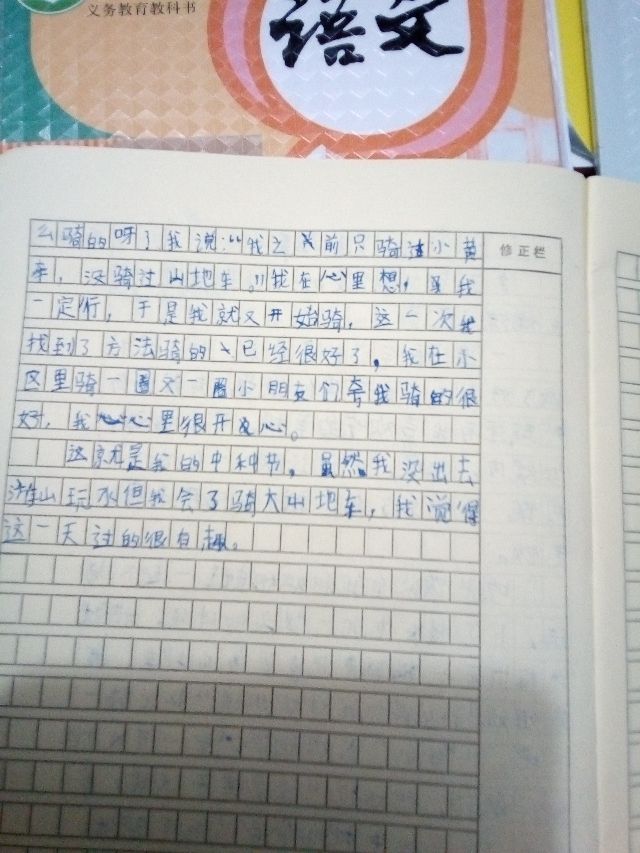 义务教育教科书
语文
修正栏
么骑的呀了我说:“我之前只骑过小黄
车,没骑过山地车。”我在心里想,我
一定行,于是我就又开始骑,这一次我
找到了方法骑的已经很好了,我在小
区里骑一圈又一圈小朋友们夸我骑的很
好,我心里很开心。
这就是我的中秋节,虽然我没出去
游山玩水但我会了骑大山地车,我觉得
这一天过的很有趣。